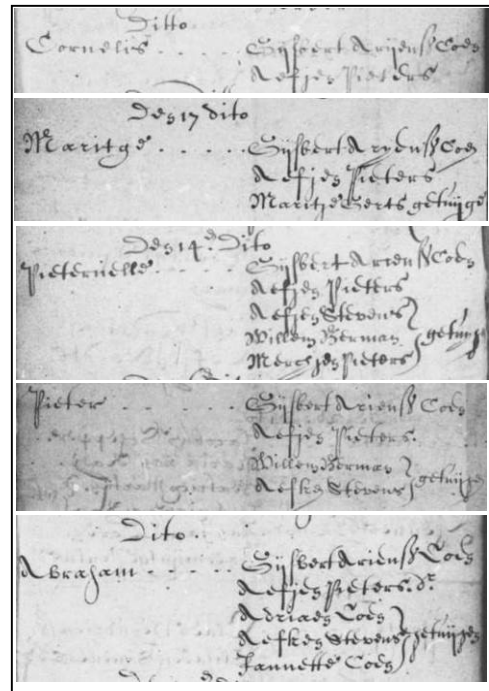 Ditto
Cornelis . . . . Gijsbert Arijensz Coeij
Aefjen Pieters
Den 17 dito
Maritge . . . . . Gijsbert Arijensz Coeij
Aefjen Pieters
Maritje Gerts getuijge
Den 14.e Dito
Pieternelle . . . . Gijsbert Ariensz Coeij
Aefjen Pieters
Aefjen Stevens
Willem Berman getuijge
Merchjen Pieters
Pieter . . . Gijsbert Ariensz Coeij
Aefjen Pieters.
Willem Berman
Aefken Stevens getuijgen
Dito
Abraham . . . . Gijsbert Ariensz Coeij
Aefjen Pieters. dr.
Adriaen Coeij
Aefken Stevens getuijgen
Jannette Coeij